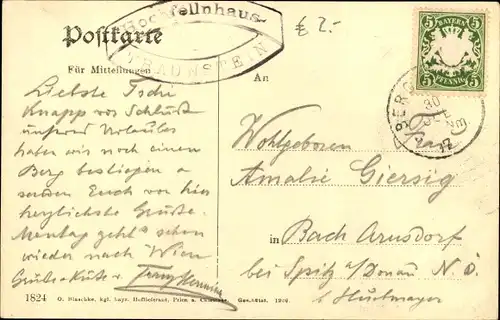 Hochfellnhaus
TRAUNSTEIN
£ 2.-
Postkarte
BAYERN
5 5
5 PFENNIG 5
Für Mitteilungen
An
Liebste Tschi
Knapp vor Schluß
unsres Urlaubes
haben wir noch einen
Berg bestiegen u
senden Euch von hier
herzlichste Grüße.
Montag geht's schon
wieder nach Wien
Grüße + Küsse v.
BERG
30
Wohlgeboren
Frau
Amalie Giersig
in Bach Arnsdorf
bei Spitz a/Donau N. Ö.
1824 O. Blaschke, kgl. bayr. Hoflieferant, Prien a. Chiemsee. Ges. gesch.